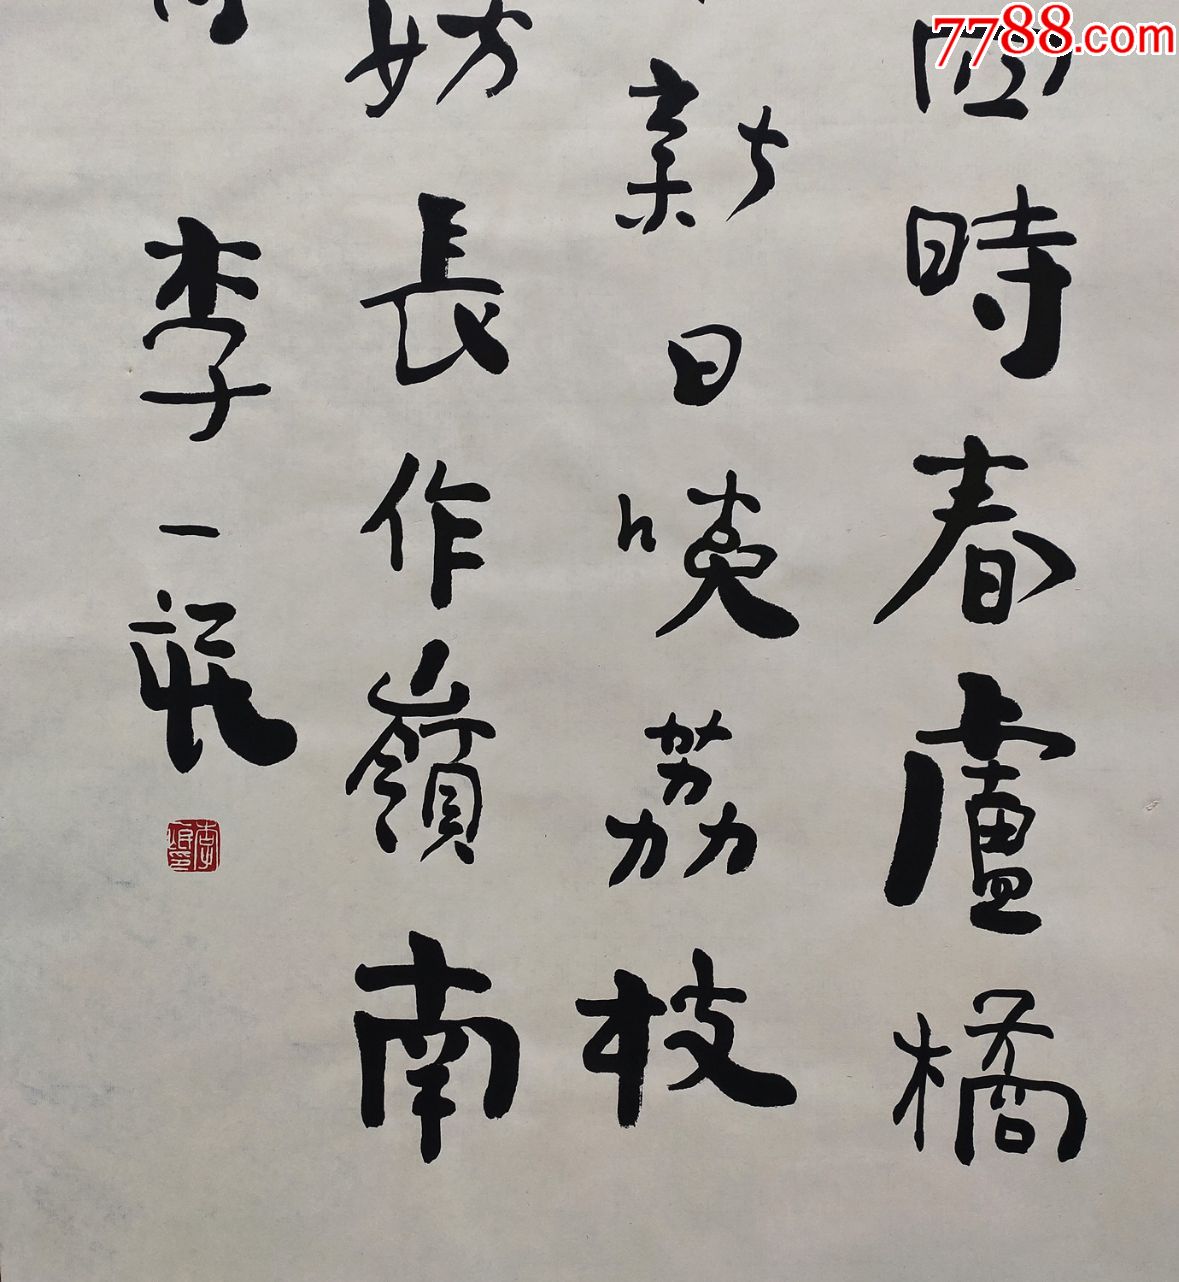 7788.com
四時春盧橘
新日啖荔枝
妨長作嶺南
李一氓